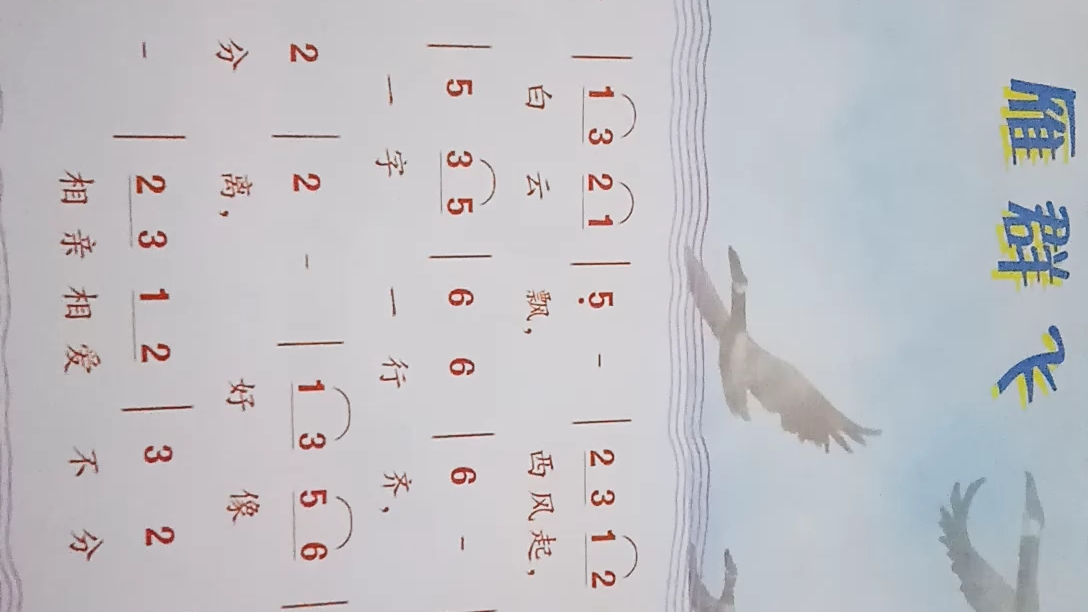 雁群飞
| 1 3 2 1 | 5̣ - | 2 3 1 2
白 云 飘, 西 风 起,
| 5 3 5 | 6 6 | 6 - |
一 字 一 行 齐,
2 | 2 - | 1 3 5 6 |
分 离, 好 像
- | 2 3 1 2 | 3 2
相 亲 相 爱 不 分